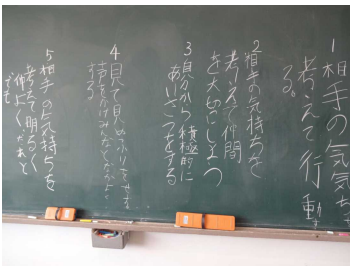 1 相手の気持ちを
考えて行動す
る。
2 相手の気持ちを
考えて仲間
を大切にしよう
3 自分から積極的に
あいさつをする
4 見て見ぬふりをせず
声をかけみんなとなかよく
する
5 相手の気持ちを
考えて明るく
仲よくだれと
でも